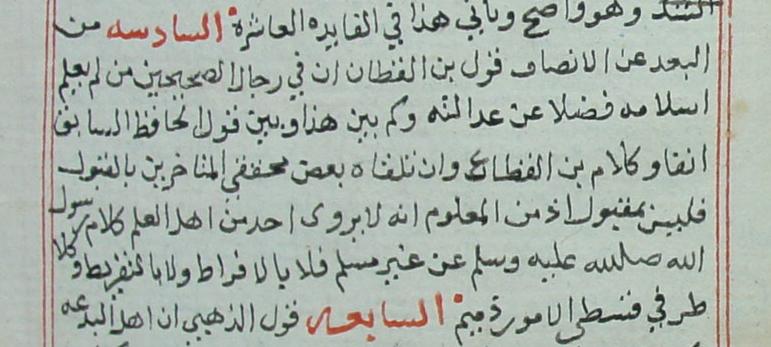 السند وهو واضح وياتي هذا في الفايده العاشرة السادسه من
البعد عن الانصاف قول بن القطان ان في رجال الصحيحين من لم يعلم
اسلامه فضلا عن عدالته وكم بين هذا وبين قول الحافظ السابق
انفا وكلام بن القطان وان تلقاه بعض محققي المتاخرين بالقبول
فليس بمقبول اذ من المعلوم انه لا يروى احد من اهل العلم كلام رسول
الله صلى الله عليه وسلم عن غير مسلم فلا بالافراط ولا بالتفريط وكلا
طرفي قسطي الامور ذميم السابعه قول الذهبي ان اهل البدعه